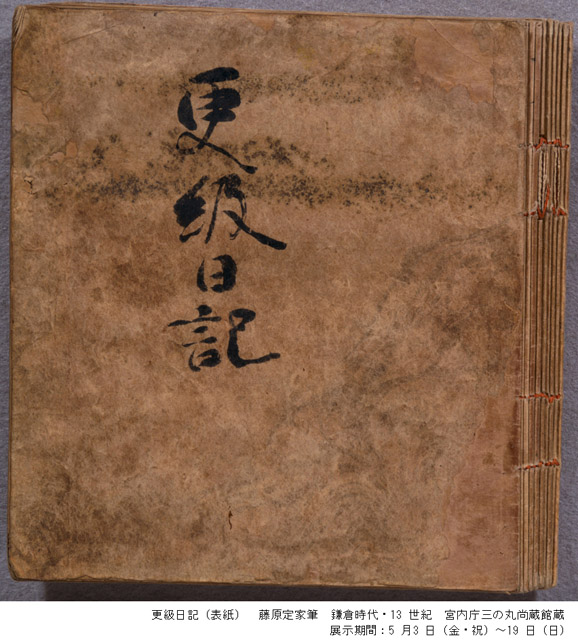 更級日記
更級日記（表紙）　藤原定家筆　鎌倉時代・13 世紀　宮内庁三の丸尚蔵館蔵
展示期間：5 月3 日（金・祝）～19 日（日）